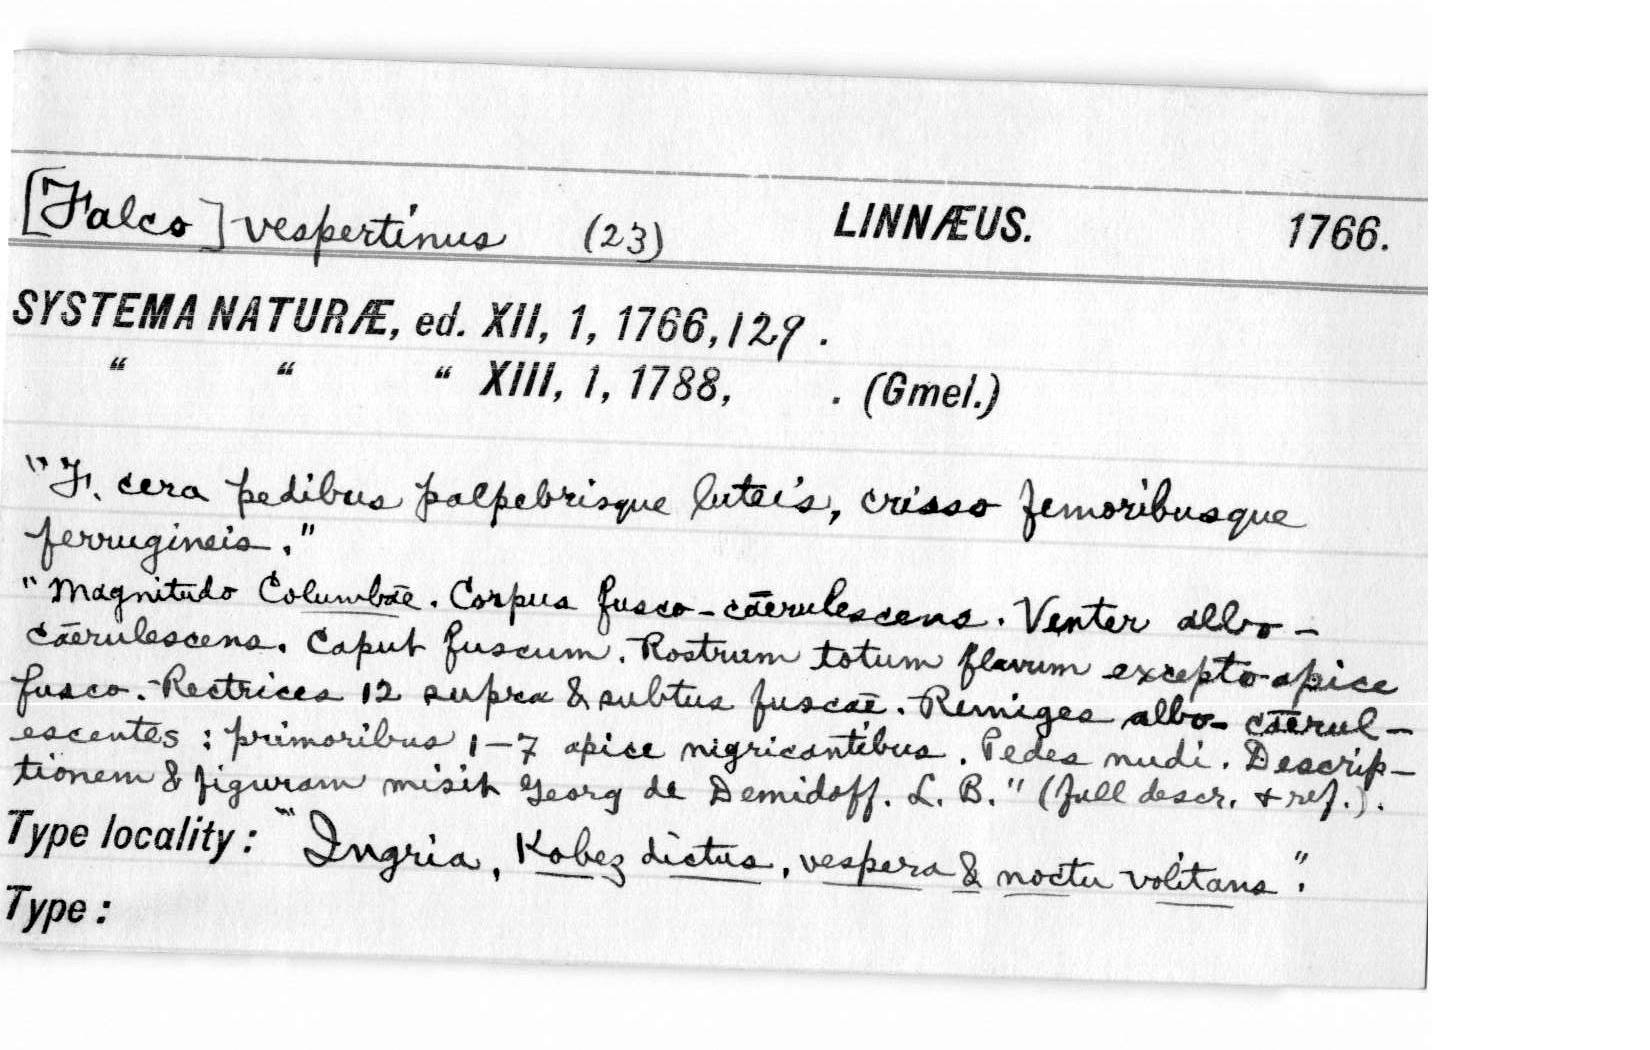 [Falco] vespertinus (23) LINNÆUS. 1766.
SYSTEMA NATURÆ, ed. XII, 1, 1766, 129.
“ “ “ XIII, 1, 1788, . (Gmel.)
"F. cera pedibus palpebrisque luteis, crisso femoribusque
ferrugineis."
"Magnitudo Columbæ. Corpus fusco-cærulescens. Venter albo-
cærulescens. Caput fuscum. Rostrum totum flavum excepto apice
fusco. Rectrices 12 supra & subtus fuscæ. Remiges albo-cærul-
escentes : primoribus 1-7 apice nigricantibus. Pedes nudi. Descrip-
tionem & figuram misit Georg de Demidoff. L. B." (full descr. + ref.).
Type locality : "Ingria, Kobez dictus, vespera & noctu volitans".
Type :